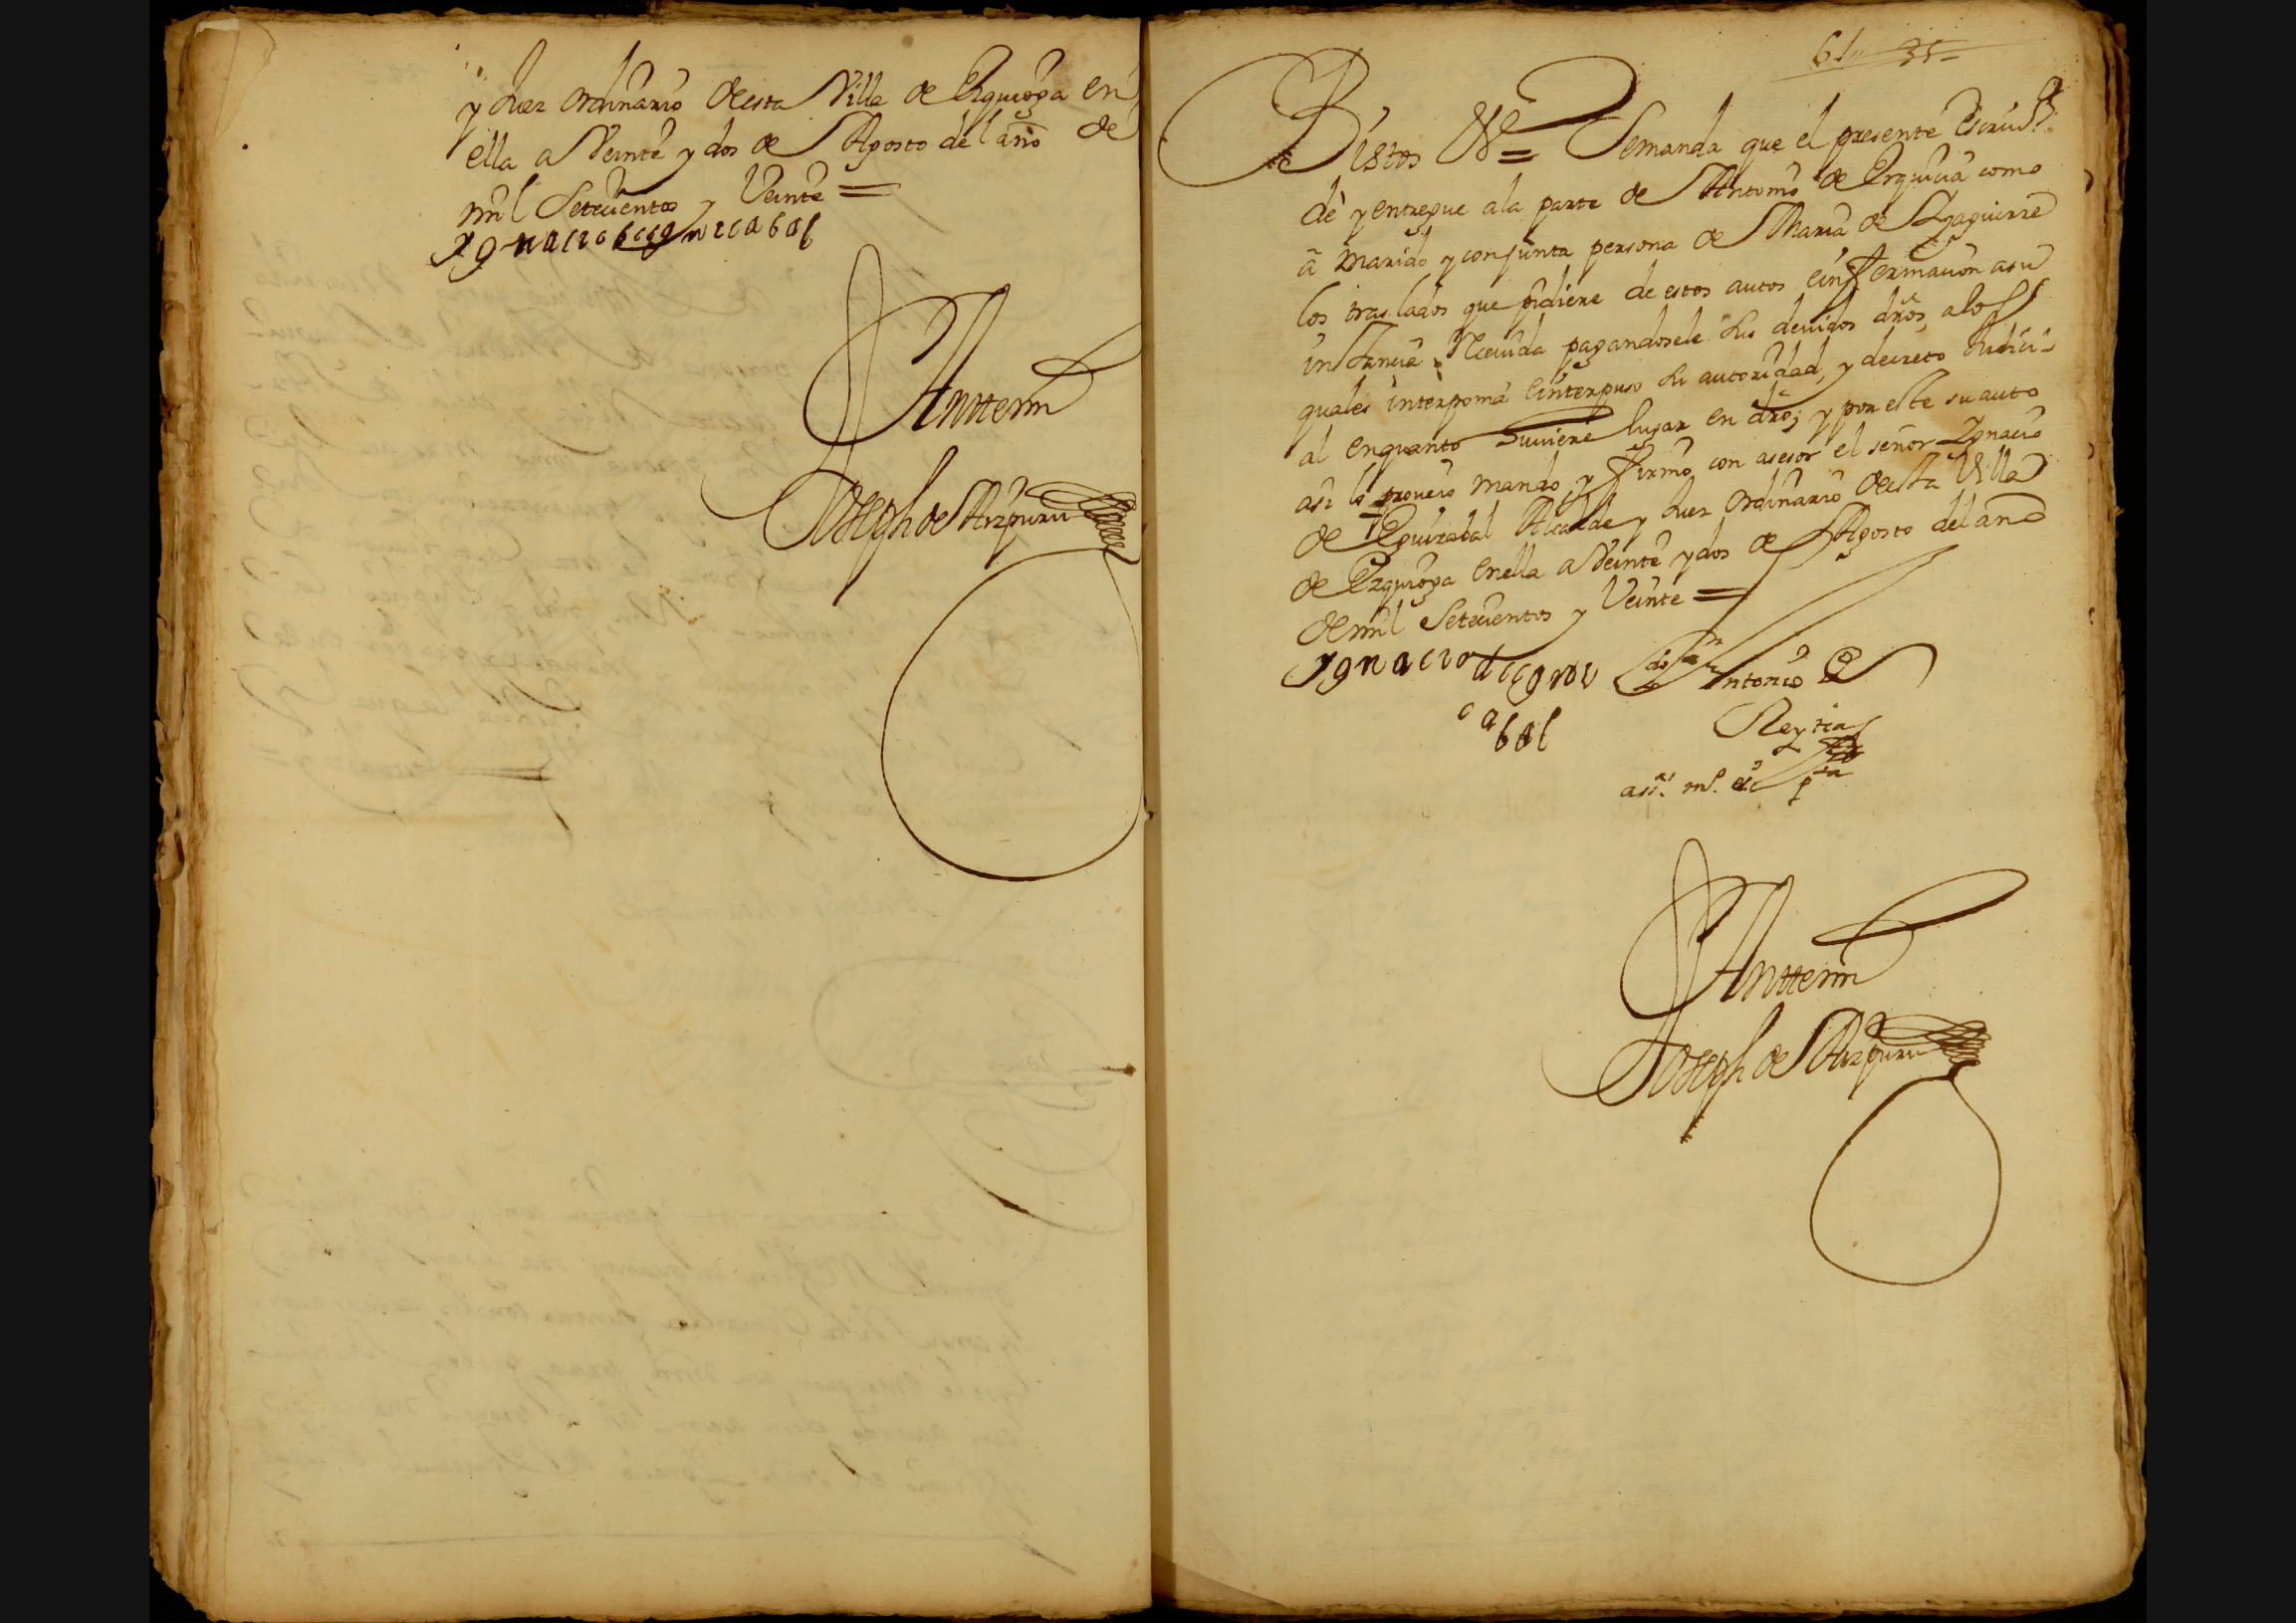 y Juez ordinario de esta Villa de Ezquioga en
ella a Veinte y dos de Agosto del año de
mil Setecientos y Veinte =
Ygnacio
Ante mi
Joseph de Aizpuru
61 35
Bistos &ª = Se manda que el presente Escriuº
dè y entregue a la parte de Antonio de Erquicia como
a marido y conjunta persona de Maria de Eyzaguirre
los traslados que pidiere de estos autos e informacion a su
instancia Receuida pagandosele sus deuidos drõs, a los
quales interponia e interpuso su autoridad, y decreto Judici-
al en quanto huuiere lugar en drõ; y por este su auto
asi lo proueio mando, y firmo, con asesor el señor Ygnacio
de Eguizabal Alcalde y Juez ordinario de esta Villa
de Ezquioga en ella a Veinte y dos de Agosto del año
de mil Setecientos y Veinte =
Ygnacio de eguiz
abal
Antonio de
Ante mi
Joseph de Aizpuru